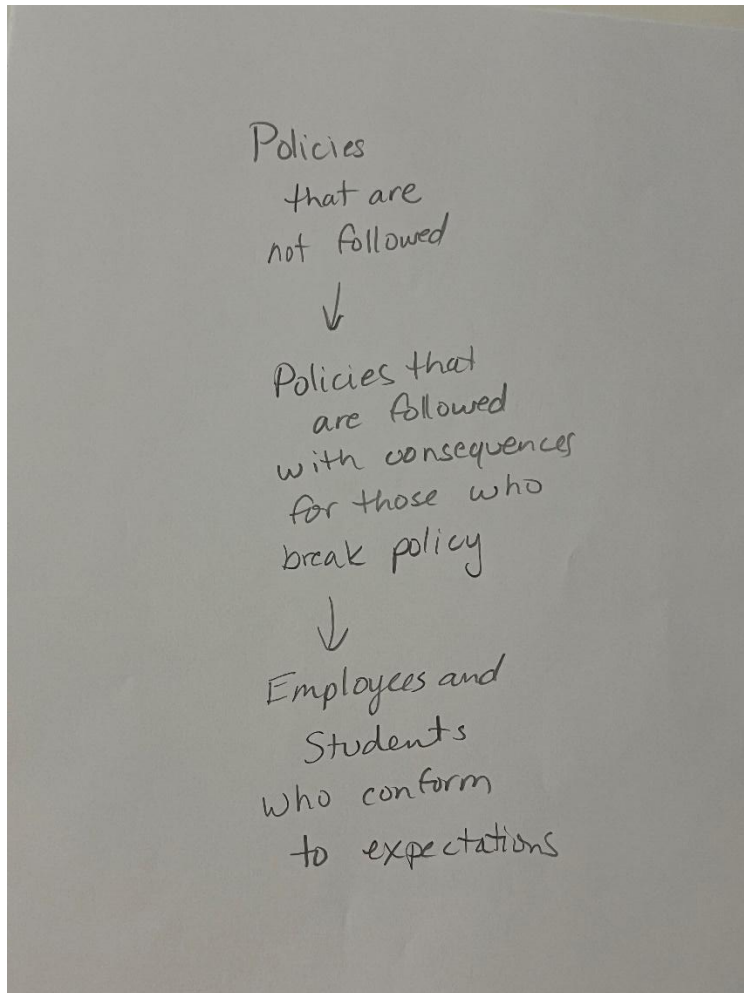 Policies
that are
not followed
↓
Policies that
are followed
with consequences
for those who
break policy
↓
Employees and
Students
who conform
to expectations